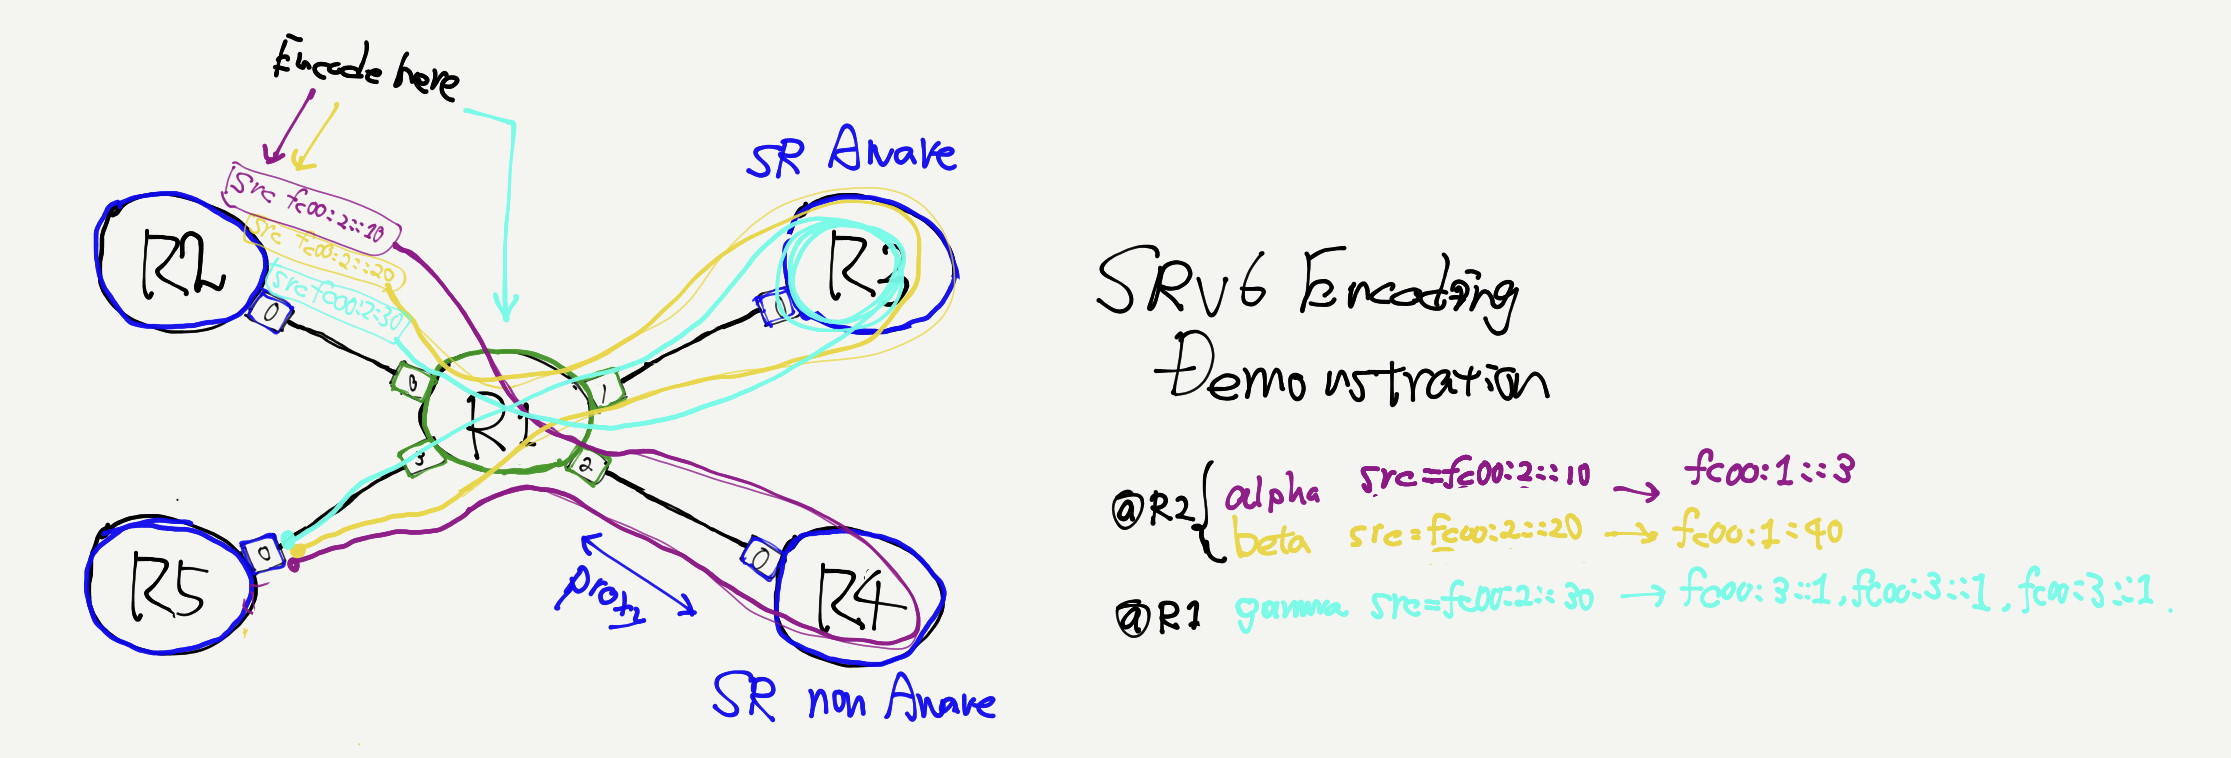 Encode here
SR Aware
src fc00:2::10
src fc00:2::20
src fc00:2::30
R2
0
R3
0
0
1
R1
3
2
R5
0
R4
0
prot2
SR non Aware
SRv6 Encoding
Demonstration
@R2 { alpha src=fc00:2::10 → fc00:1::3
beta src=fc00:2::20 → fc00:1::40
@R1 gamma src=fc00:2::30 → fc00:3::1, fc00:3::1, fc00:3::1.